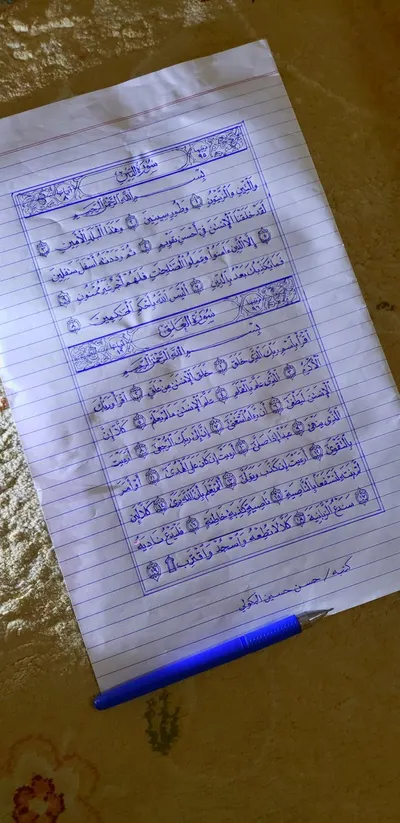 سورة التين
بسم الله الرحمن الرحيم
والتين والزيتون ١ وطور سينين ٢ وهذا البلد الأمين ٣
لقد خلقنا الإنسن في أحسن تقويم ٤ ثم رددنه أسفل سفلين
٥ إلا الذين ءامنوا وعملوا الصلحت فلهم أجر غير ممنون ٦
فما يكذبك بعد بالدين ٧ أليس الله بأحكم الحكمين ٨
سورة العلق
بسم الله الرحمن الرحيم
اقرأ باسم ربك الذي خلق ١ خلق الإنسن من علق ٢ اقرأ وربك
الأكرم ٣ الذي علم بالقلم ٤ علم الإنسن ما لم يعلم ٥ كلا إن
الإنسن ليطغى ٦ أن رءاه استغنى ٧ إن إلى ربك الرجعى ٨ أرءيت
الذي ينهى ٩ عبدا إذا صلى ١٠ أرءيت إن كان على الهدى ١١ أو أمر
بالتقوى ١٢ أرءيت إن كذب وتولى ١٣ ألم يعلم بأن الله يرى ١٤ كلا لئن
لم ينته لنسفعا بالناصية ١٥ ناصية كذبة خاطئة ١٦ فليدع ناديه
١٧ سندع الزبانية ١٨ كلا لا تطعه واسجد واقترب ١٩
كتبه / حسن حسين الكولي